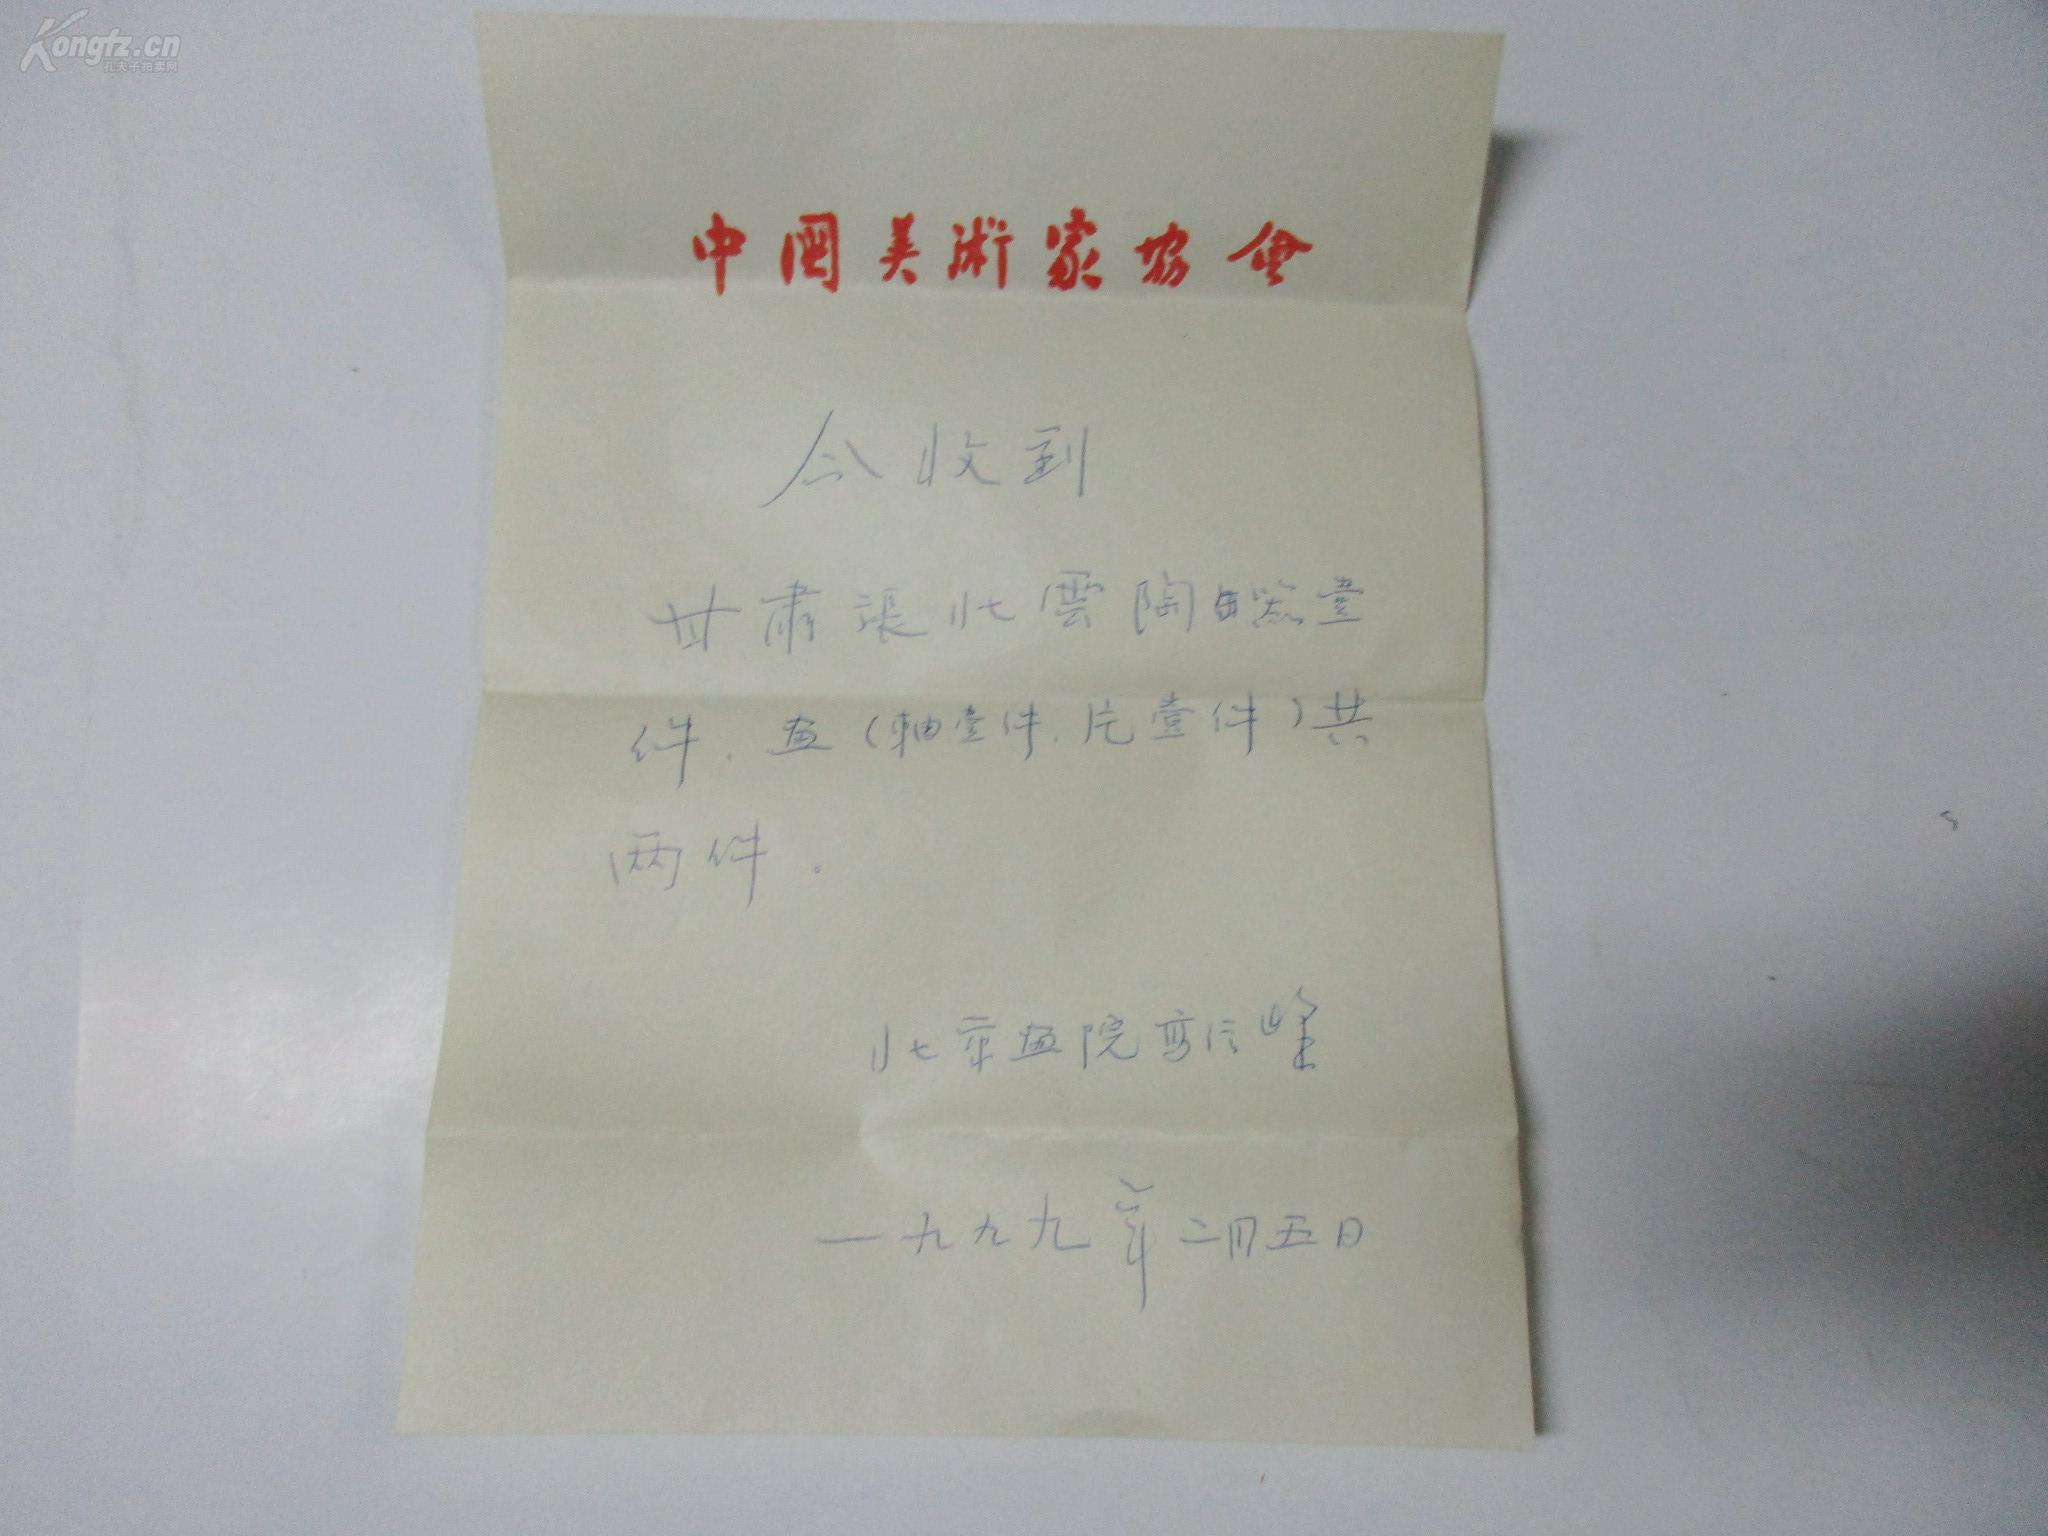 Kongfz.cn
孔夫子拍卖网
中國美術家協會
今收到
甘肃張北雲陶器壹
件．画（軸壹件．片壹件）共
两件．
北京画院 峰
一九九九年二月五日